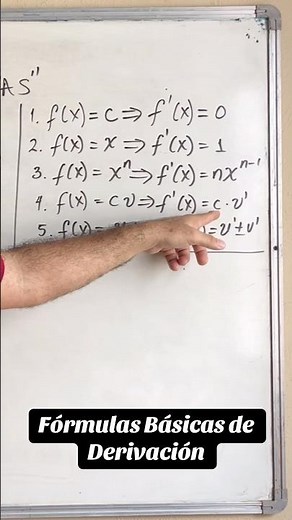 AS"
1. f(x) = c ⇒ f'(x) = 0
2. f(x) = x ⇒ f'(x) = 1
3. f(x) = xⁿ ⇒ f'(x) = nxⁿ⁻¹
4. f(x) = cv ⇒ f'(x) = c·v'
5. f(x) = = v' ± v'
Fórmulas Básicas de
Derivación